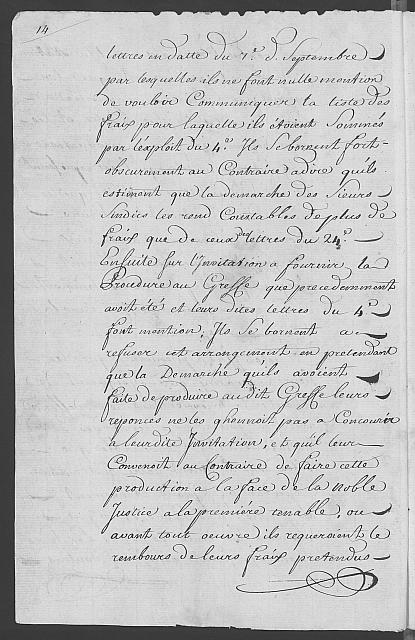 14
lettres en datte du 7.e d. Septembre
par lesquelles ils ne font nulle mention
de vouloir Communiquer la liste des
fraix pour laquelle ils étoient Sommés
par l'éxploit du 4.e Ils Se bornent fort
obscurement au Contraire a dire quils
estiment que la demarche des Sieurs
Sindics les rend Coustables de plus de
fraix que de ceux des lettres du 24.e
Ensuite Sur l'Invitation a fournir la
Procedure au Greffe que precedemment
avoit été et leurs dites lettres du 4.e
font mention, Ils Se bornent a
refuser cet arrangement en pretendant
que la Demarche qu'ils avoient
faite de produire au dit Greffe leurs
reponces ne les ghennoit pas a Concourir
a leur dite Invitation, et qu'il leur
Convenoit au Contraire de faire cette
production a la face de la Noble
Justice a la première tenable, ou
avant tout oeuvre ils requeroient le
rembours de leurs fraix pretendus